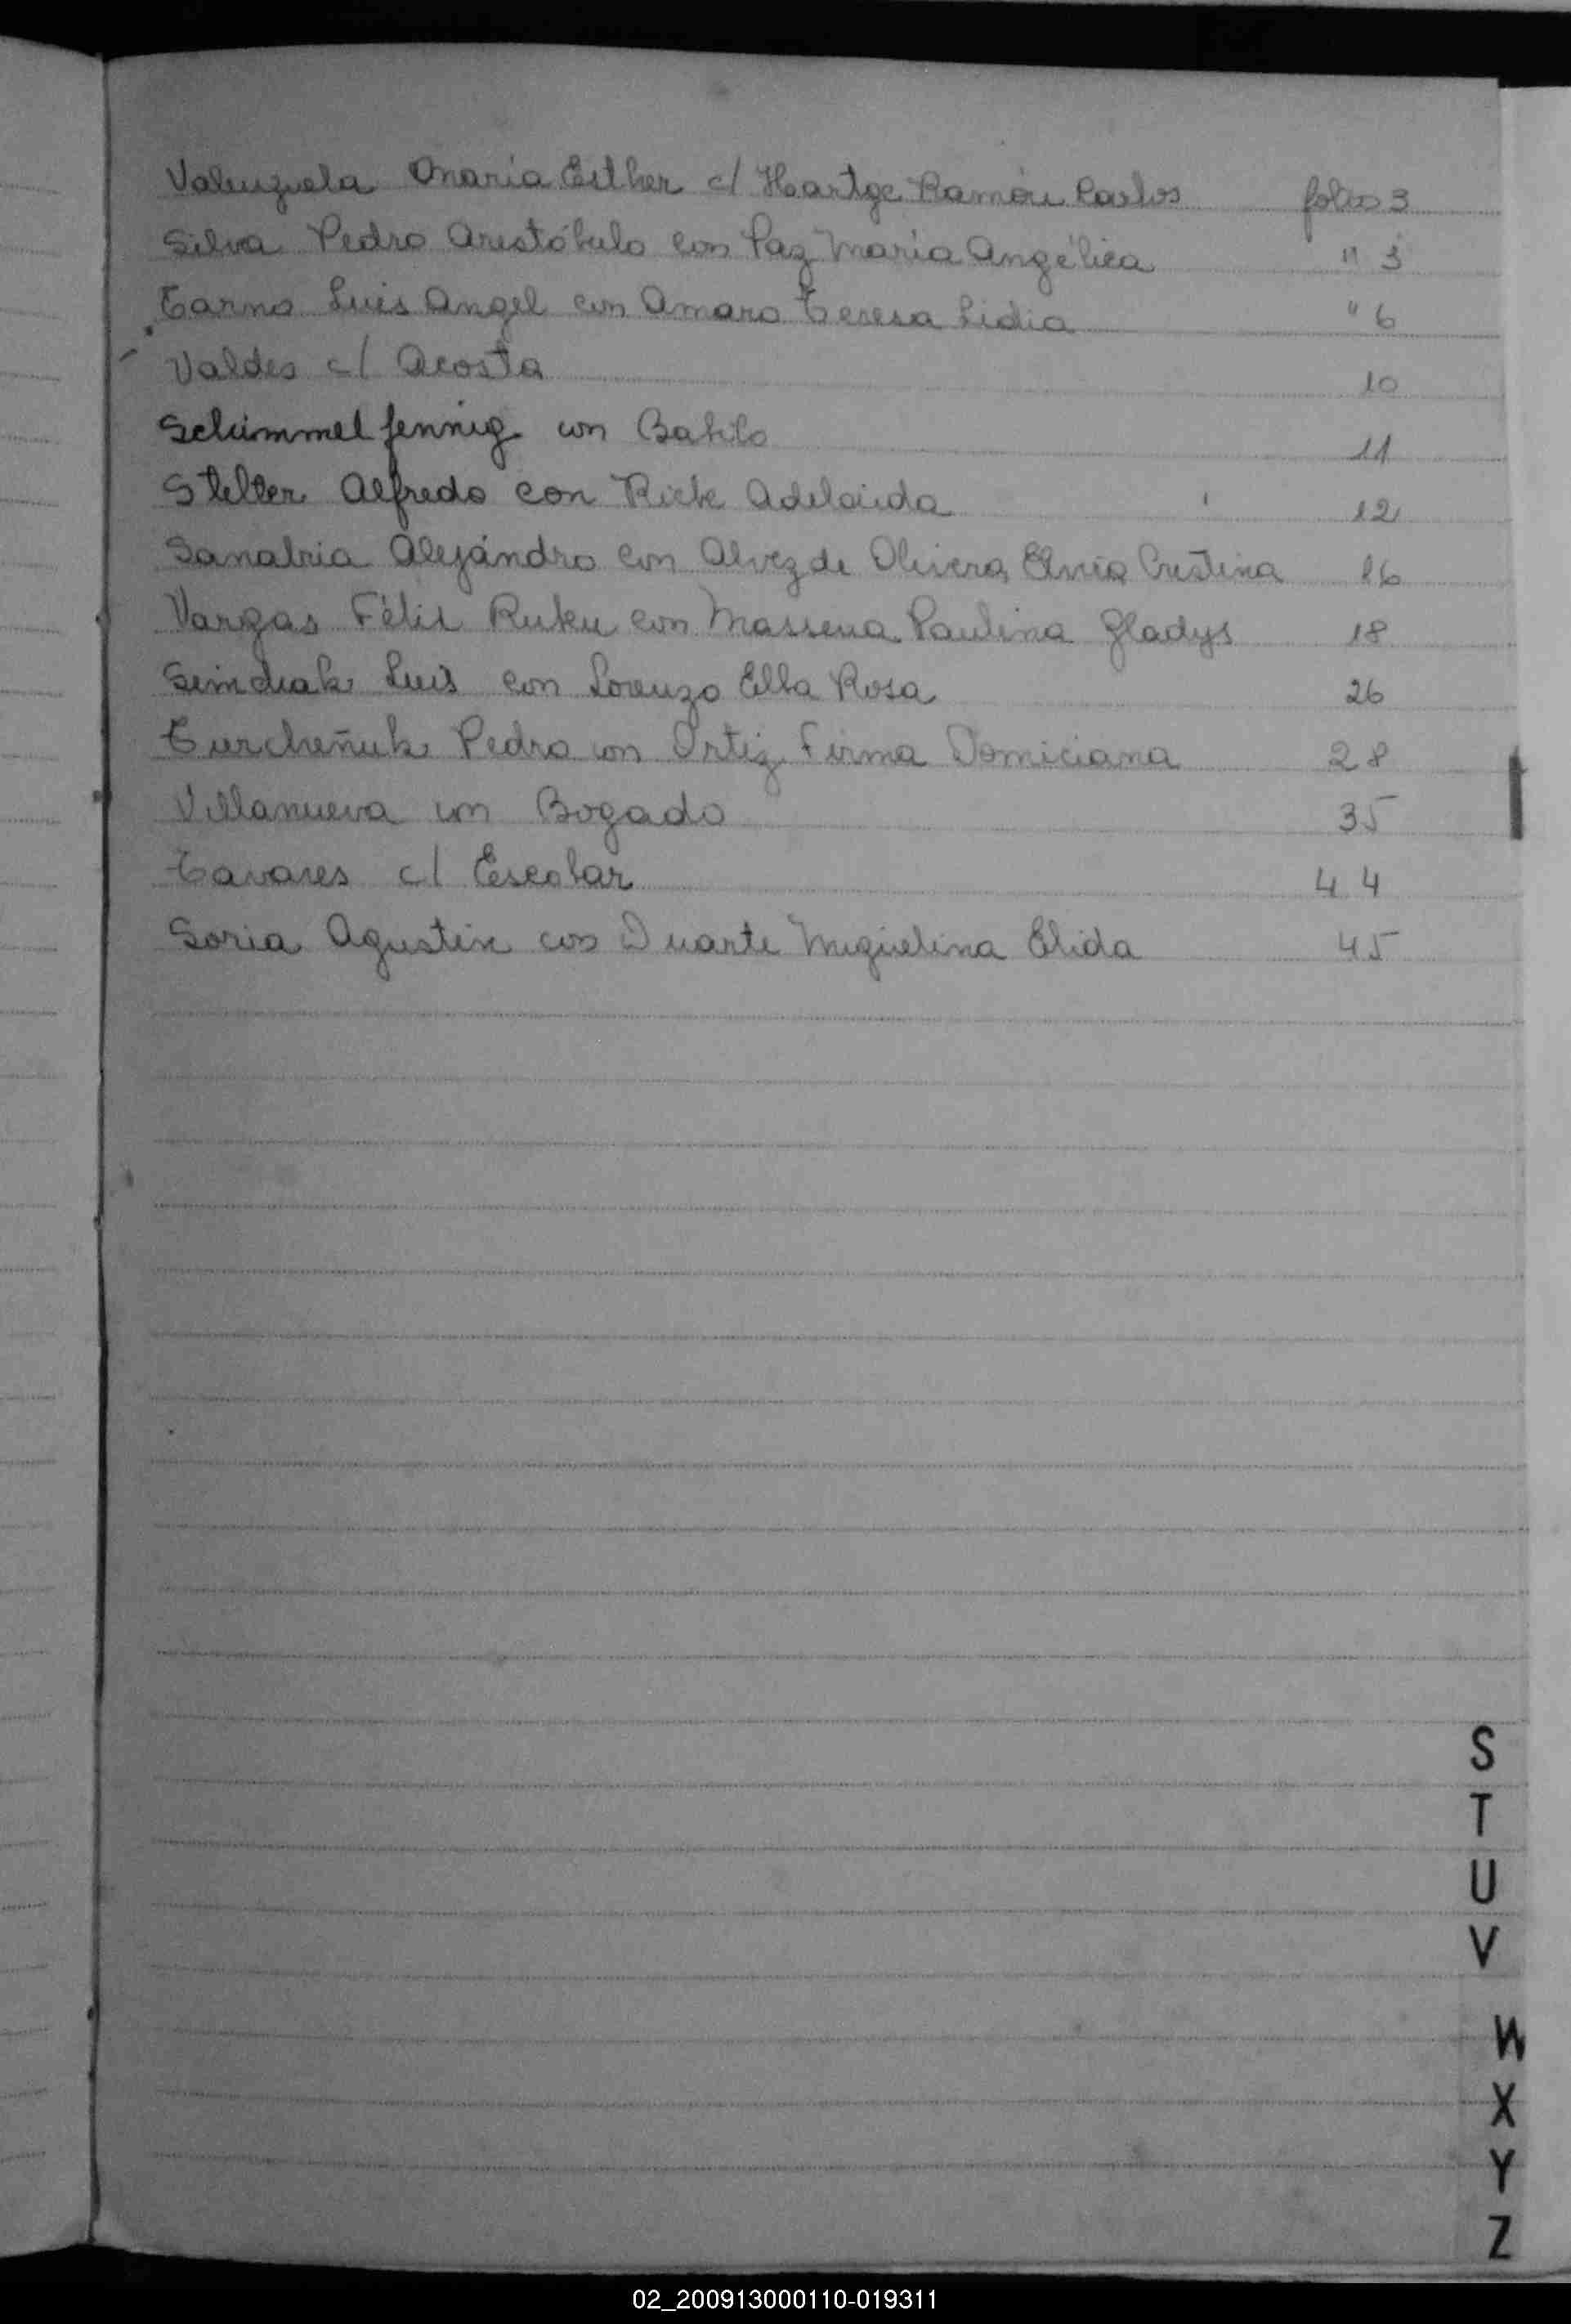 Valenzuela María Esther c/ Hartge Ramón Carlos folio 3
Silva Pedro Aristóbulo con Paz María Angélica " 3
Tarno Luis Angel con Amaro Teresa Lidia " 6
Valdes c/ Acosta 10
Schimmelfennig con Batilo 11
Stelter Alfredo con Rieke Adelaida 12
Sanabria Alejándro con Alvez de Olivera Cristina 16
Vargas Félix con Massena Paulina Gladys 18
Semchak Luis con Lorenzo Elba Rosa 26
Turcheñuk Pedro con Ortiz Firma Domiciana 28
Villanueva con Bogado 35
Tavares c/ Escobar 44
Soria Agustin con Duarte Miguelina Elida 45
S
T
U
V
W
X
Y
Z
02_200913000110-019311